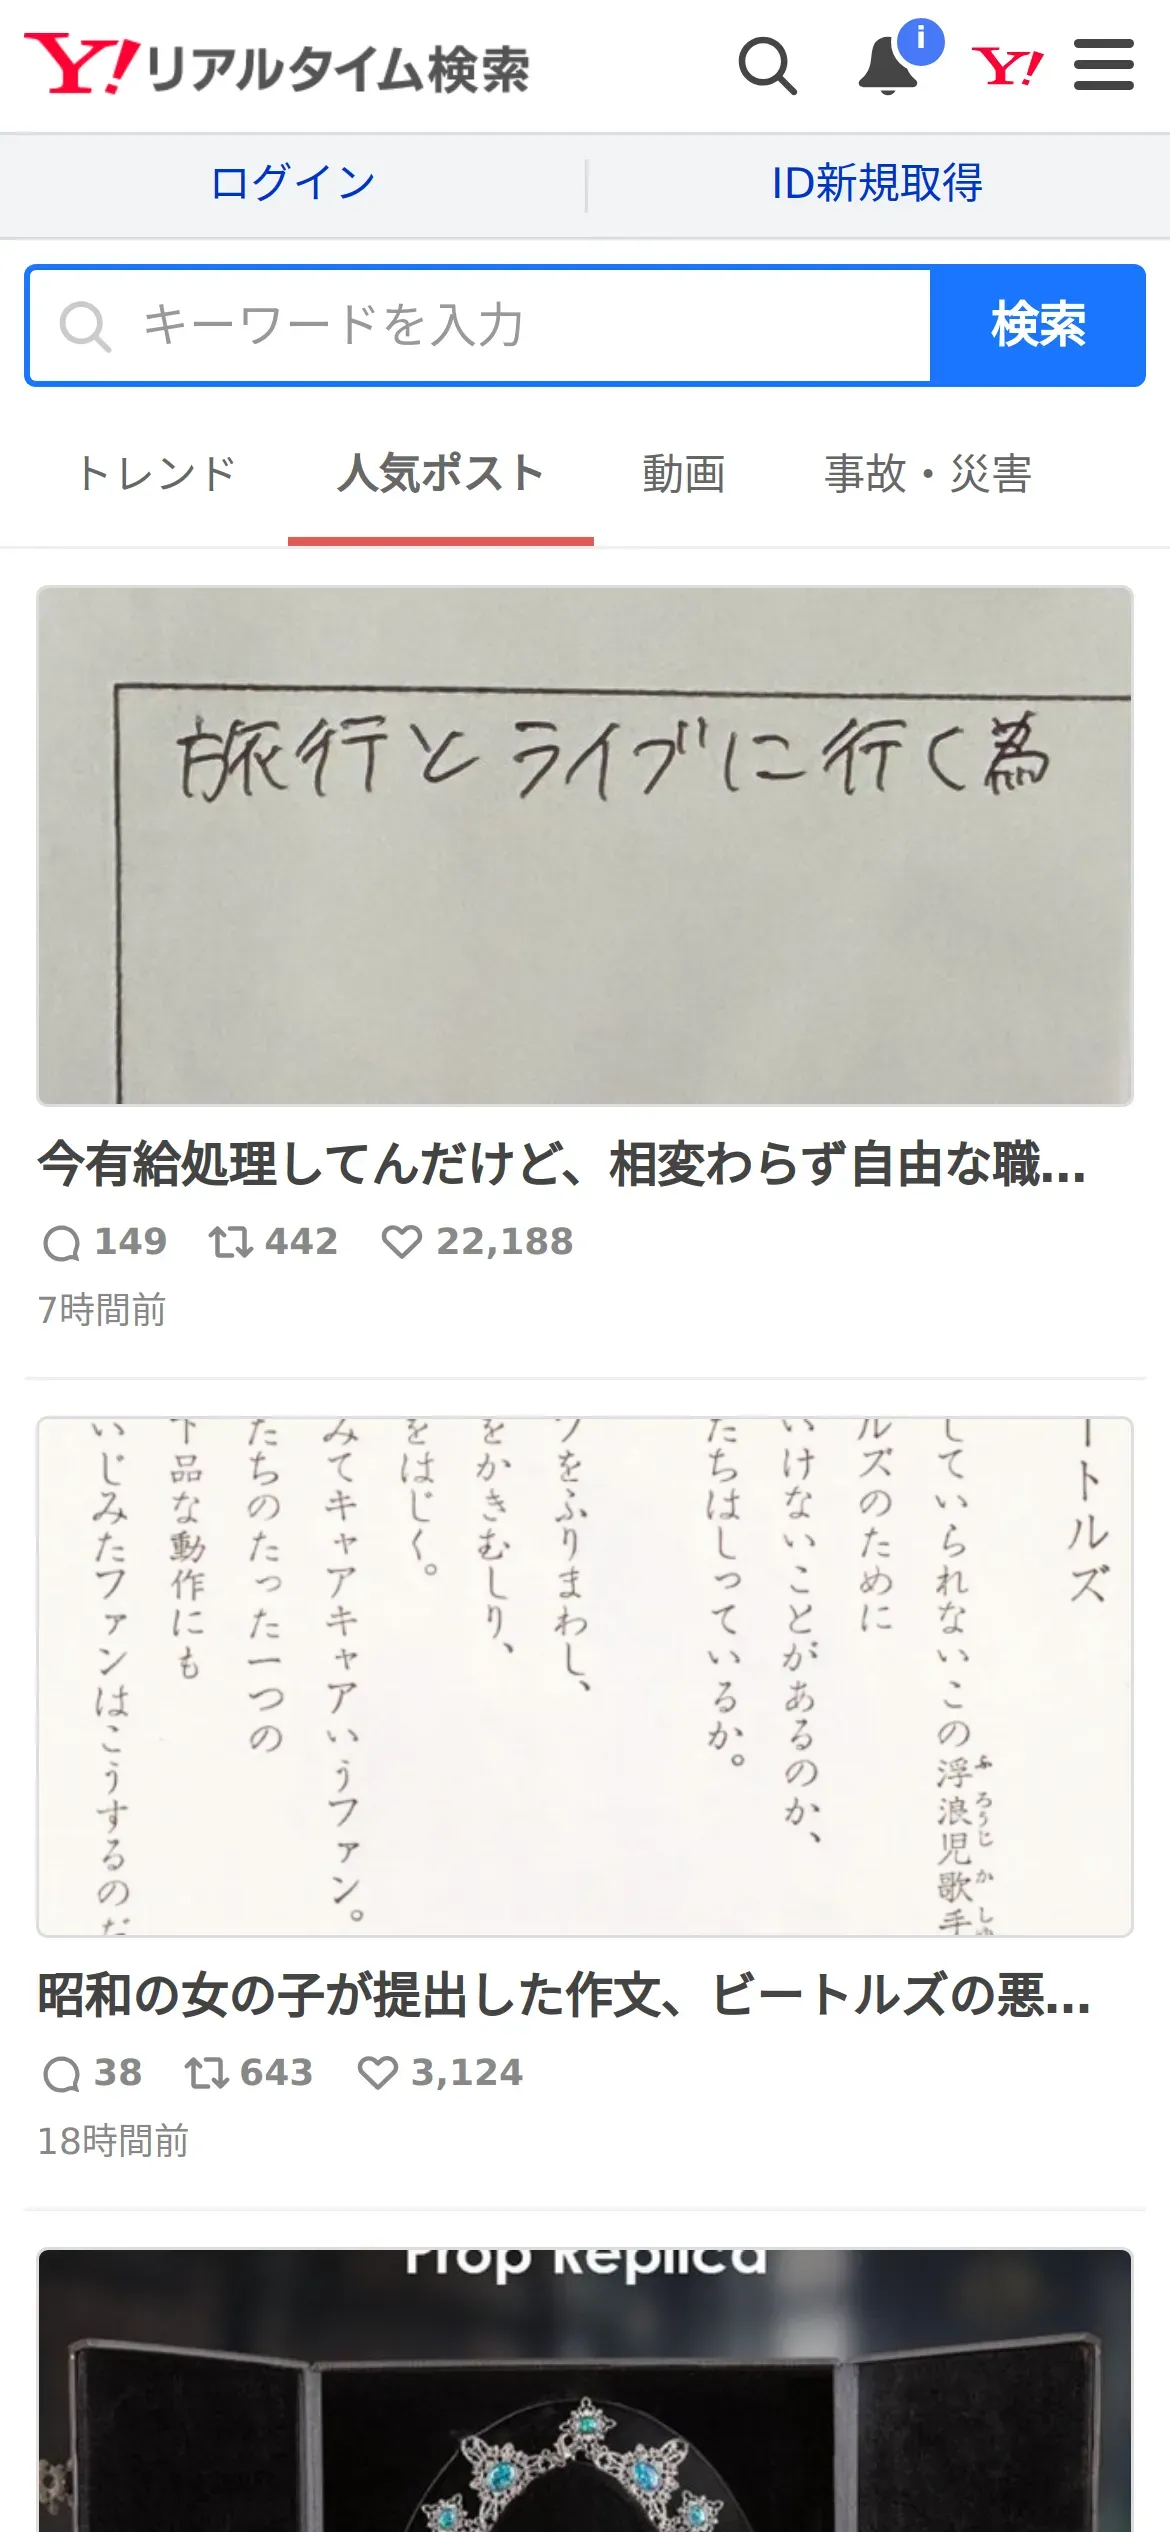 Y!リアルタイム検索
i
Y!
ログイン
ID新規取得
キーワードを入力
検索
トレンド
人気ポスト
動画
事故・災害
旅行とライブに行く為
今有給処理してんだけど、相変わらず自由な職...
149
442
22,188
7時間前
ートルズ
していられないこの浮浪児歌手
ルズのために
いけないことがあるのか、
たちはしっているか。
をふりまわし、
をかきむしり、
をはじく。
みてキャアキャアいうファン。
たちのたった一つの
下品な動作にも
いじみたファンはこうするのだ
昭和の女の子が提出した作文、ビートルズの悪...
38
643
3,124
18時間前
Prop Replica